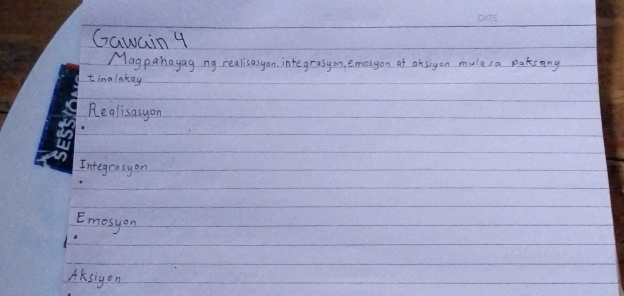 DATE
Gawain 4
Magpahayag ng realisasyon, integrasyon, emosyon at aksiyon mula sa paksang
tinalakay
Realisasyon
•
Integrasyon
•
Emosyon
•
Aksiyon
SESSION